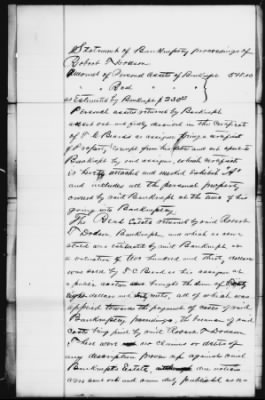 Statement of Bankruptcy proceedings of
Robert T Dodson
Amount of Personal assets of Bankrupt $78.00
" " Real "
as Estimated by Bankrupt $230.00
Personal assets returned by Bankrupt
were set out and fully described in the certificate
of T. C. Beard as assignee giving a receipt
of Property exempt from his and set apart to
Bankrupt by said assignee, which receipt
is hereto attached and marked Exhibit "A"
and includes all the personal property
owned by said Bankrupt at the time of his
going into Bankruptcy.
The Real Estate returned by said Robert
T Dodson Bankrupt, and which as same
stated was estimated by said Bankrupt at
a valuation of two hundred and thirty dollars
was sold by T C Beard as his assignee at
a public auction and brought the sum of
eight dollars and cents, all of which was
applied towards the payment of costs of said
Bankruptcy proceedings, the balance of said
costs being paid by said Robert T. Dodson.
There were no claims or debts of
any description proven up against said
Bankrupts Estate, due notices
were sent out and same duly published as